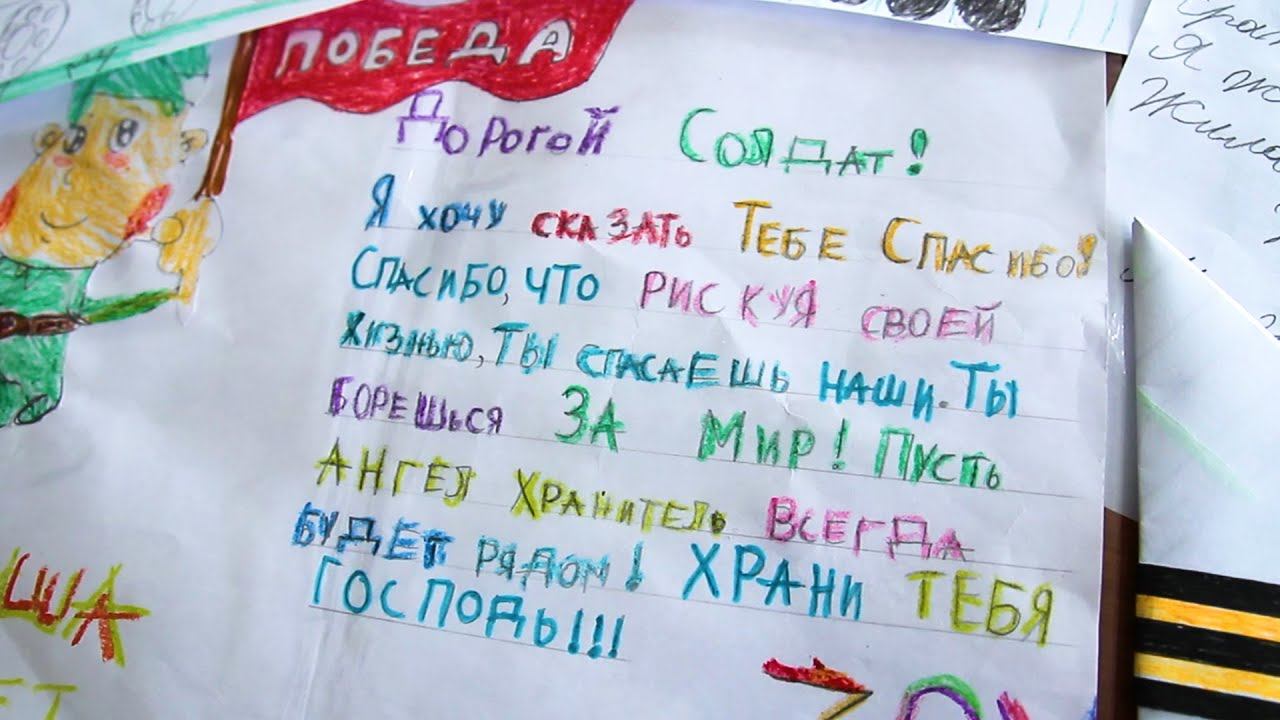 ПОБЕДА
Дорогой Солдат!
Я хочу сказать Тебе Спасибо!
Спасибо, что рискуя своей
жизнью, ты спасаешь наши. Ты
борешься за мир! Пусть
Ангел Хранитель Всегда
будет рядом! Храни тебя
Господь!!!
Я